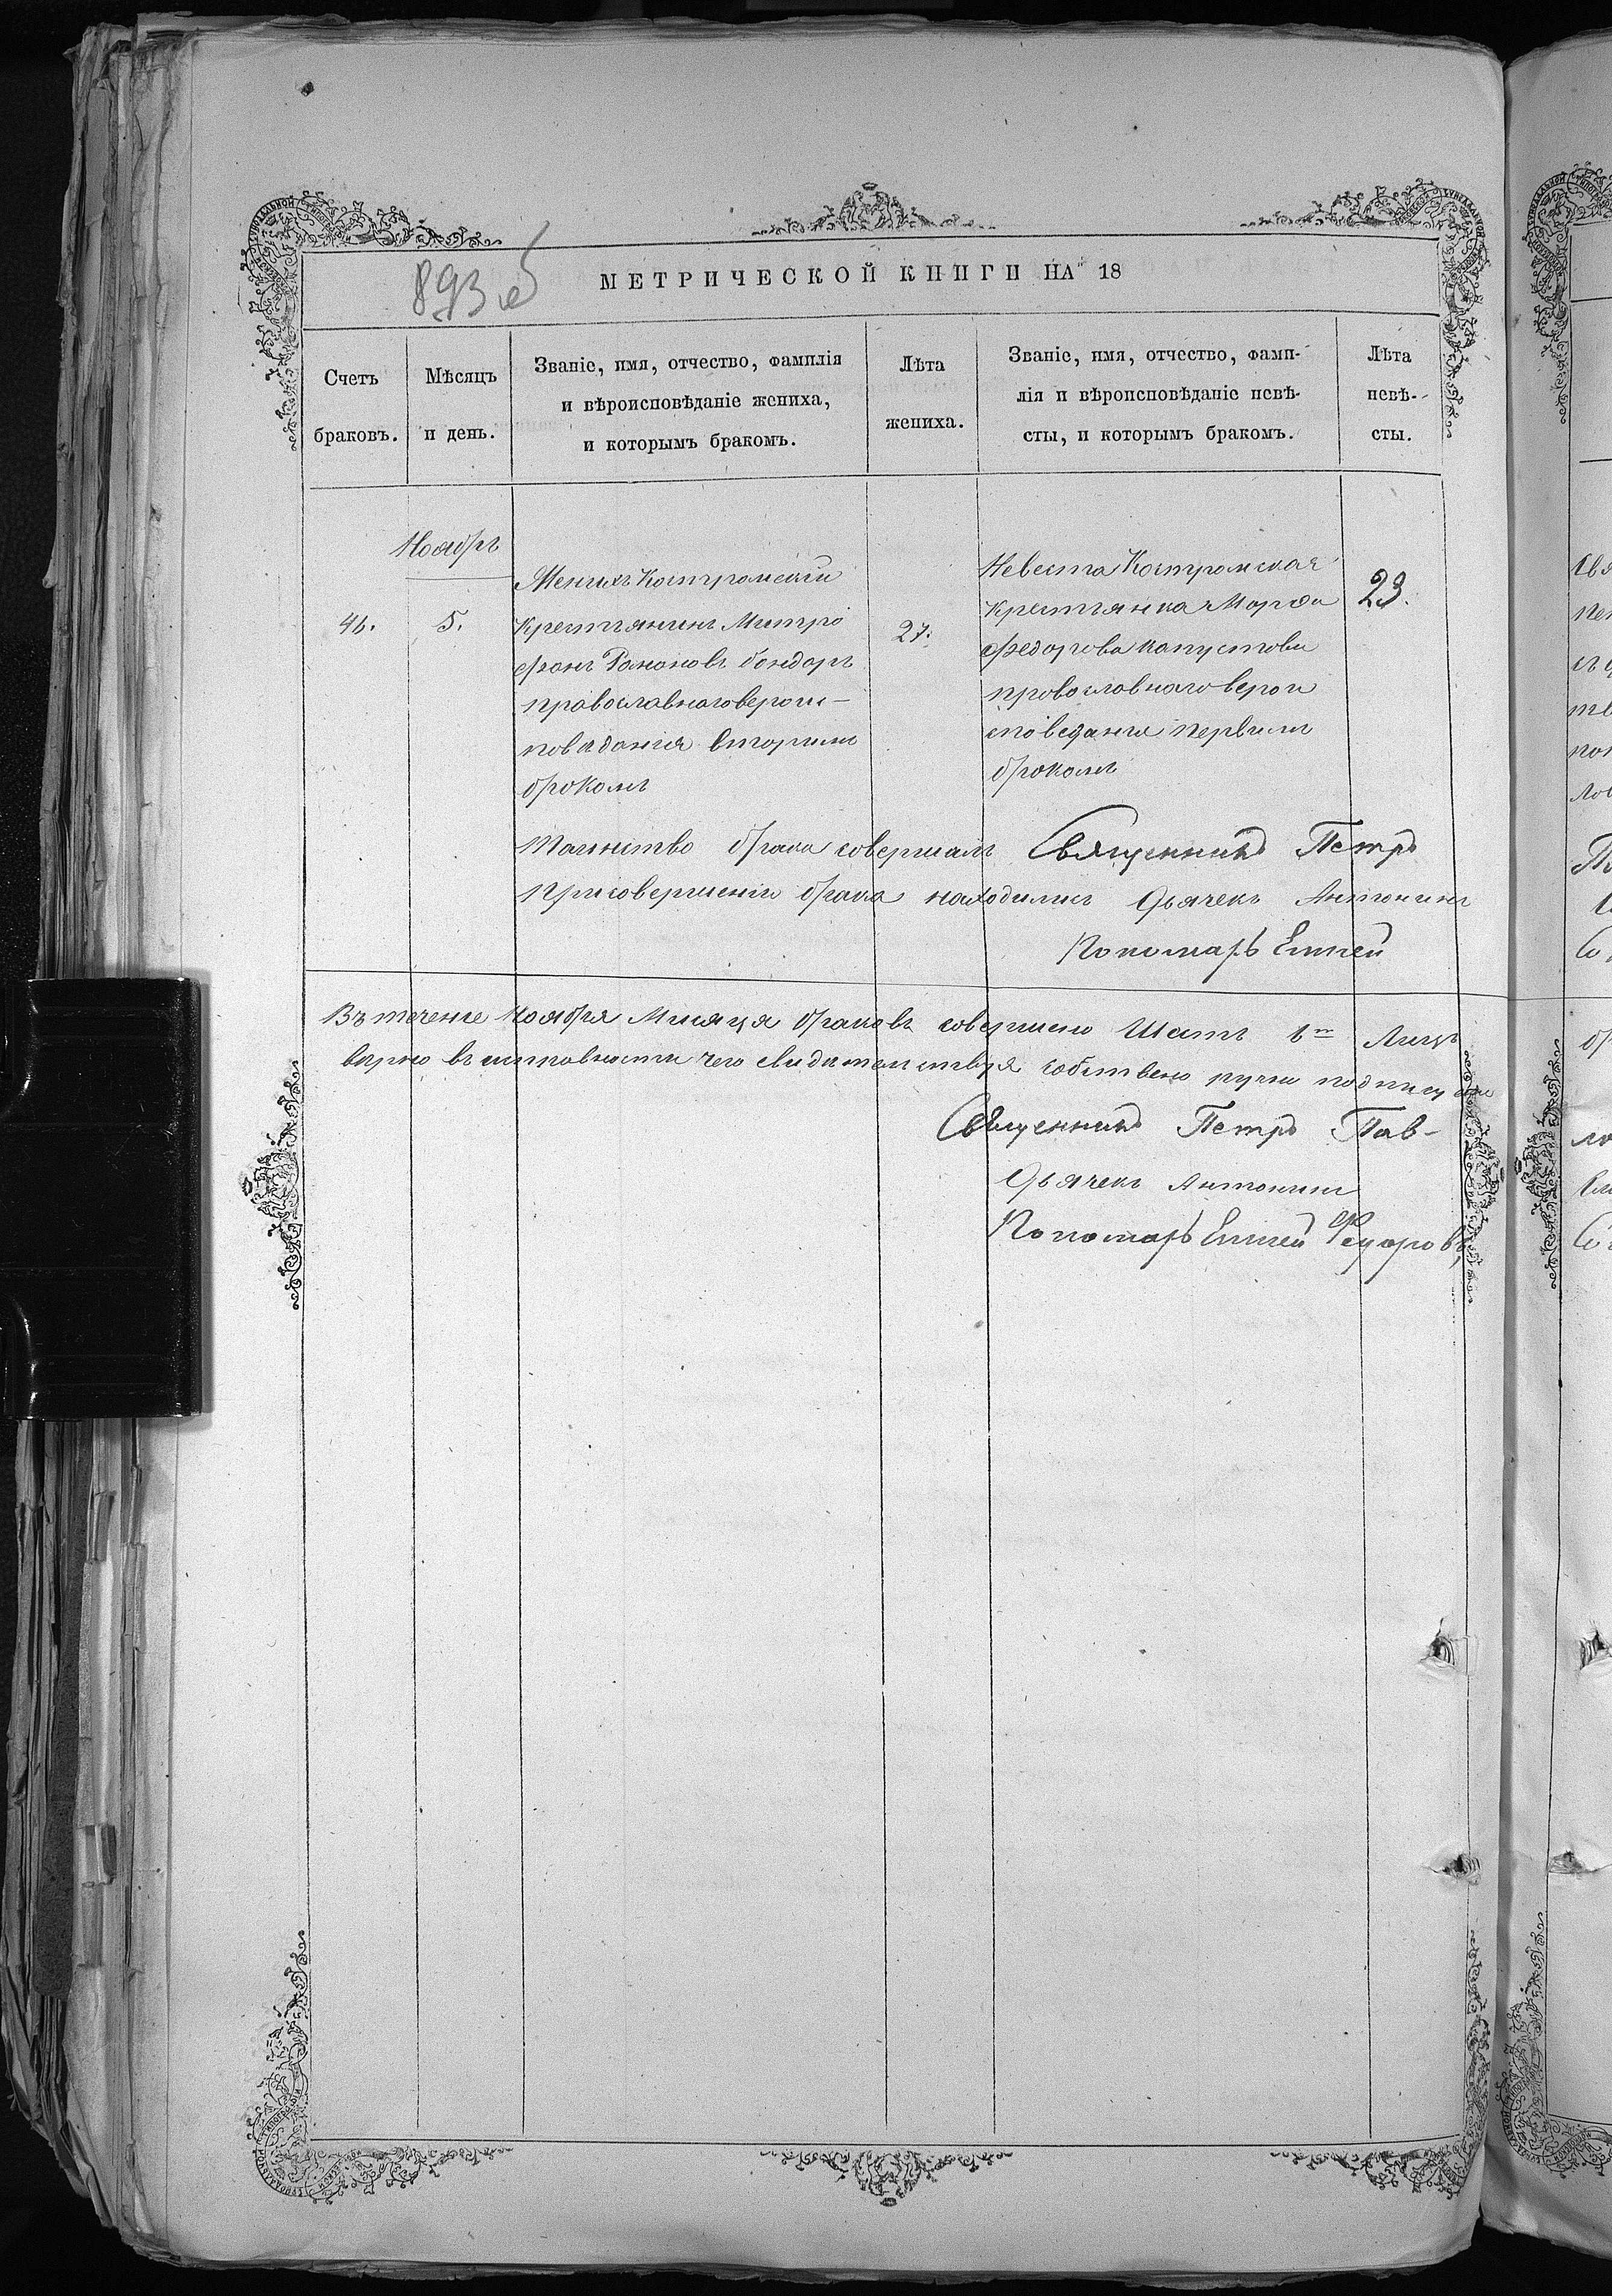 893 об
МЕТРИЧЕСКОЙ КНИГИ НА 18
Счетъ
браковъ.
Мѣсяцъ
и день.
Званіе, имя, отчество, фамилія
и вѣроисповѣданіе жениха,
и которымъ бракомъ.
Лѣта
жениха.
Званіе, имя, отчество, фами-
лія и вѣроисповѣданіе невѣ-
сты, и которымъ бракомъ.
Лѣта
невѣ-
сты.
Ноябрь
46.
5.
Жених Костромскій
Крестьянинъ Митро
фанъ Романовъ бондарь
православнаго вероис-
поведания вторымъ
броком
27.
Невеста Костромская
крестьянка Марфа
Федорова Капустова
провославнаго верои
споведания первым
броком
23.
Таинство брака совершал Священникъ Петръ
При совершении брака находились Дьячекъ Антонин
Пономарь Елисей
Въ течение Ноября Месяца браков совершено Шесть 6 Лицъ
верно в исправности чего свидетельствуя собствено ручно подписуем
Священникъ Петръ Пав-
Дьячекъ Антонин
Пономарь Елисей Федоровъ